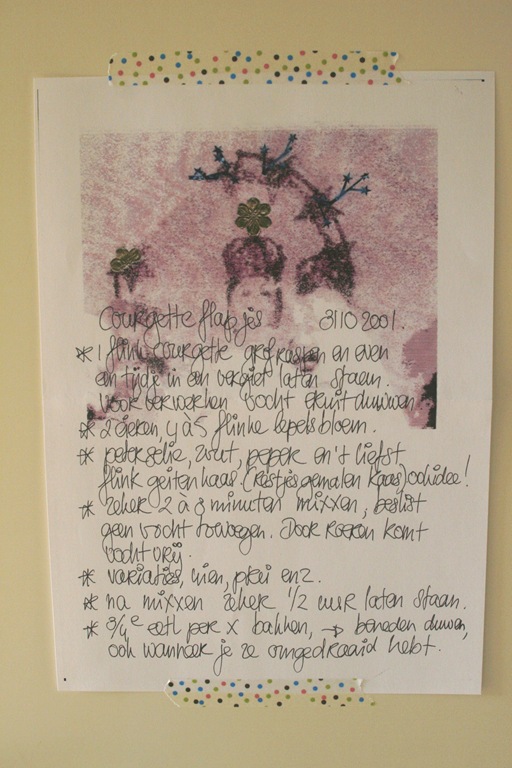 Courgette flapjes 31102001.
* 1 flink courgette grof raspen en even
een tijdje in een vergiet laten staan.
Voor verwerken vocht eruit duwen
* 2 eieren, 4 à 5 flinke lepels bloem.
* peterselie, zout, peper en 't liefst
flink geitenkaas. (restjes gemalen kaas) ook idee!
* zeker 2 à 3 minuten mixxen, beslist
geen vocht toevoegen. Door roeren komt
vocht vrij.
* variaties, uien, prei enz.
* na mixxen zeker 1/2 uur laten staan.
* 3/4 e eetl per x bakken, → beneden duwen,
ook wanneer je ze omgedraaid hebt.